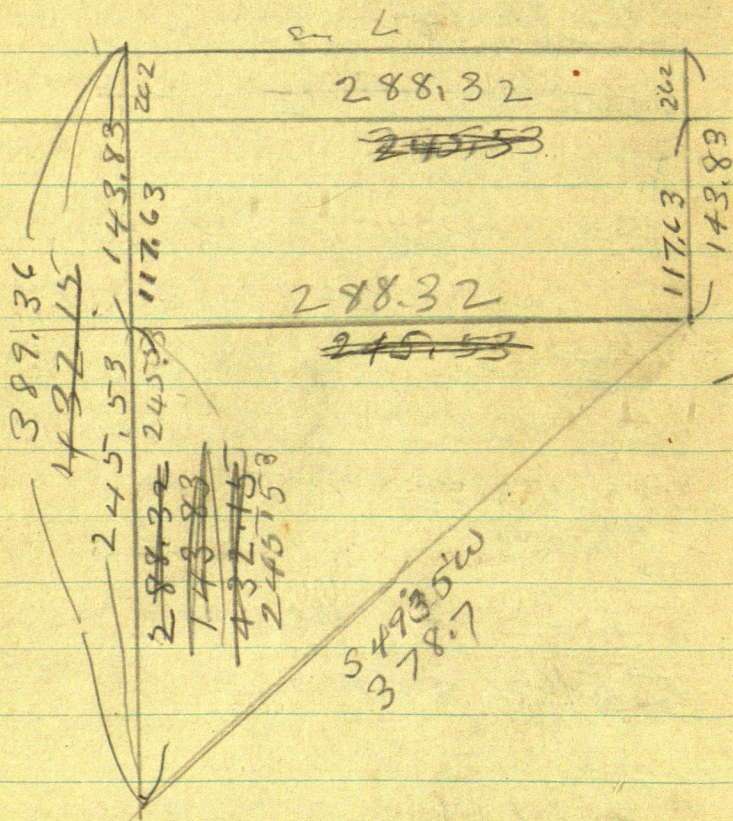 288.32
245.53
262
143.83
117.63
262
117.63
143.83
288.32
245.53
389.36
432.15
245.53
245.53
288.32
143.83
432.15
245.53
S 49° 35' W
378.7